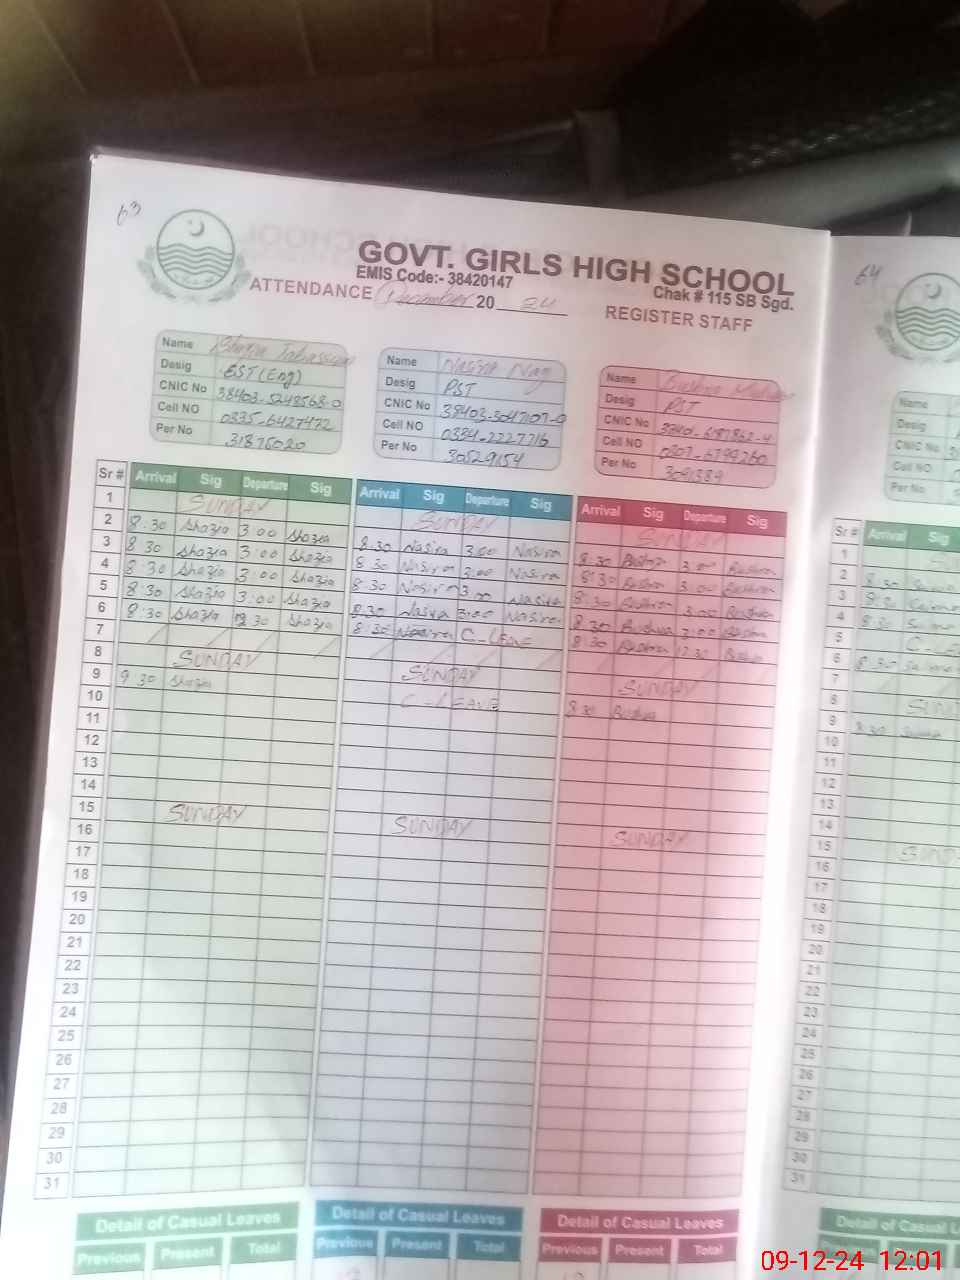 63
GOVT. GIRLS HIGH SCHOOL
EMIS Code:- 38420147
Chak # 115 SB Sgd.
ATTENDANCE December 20 24 REGISTER STAFF
64
Name
Desig EST (Eng)
CNIC No 38403-5248568-0
Cell NO 0335-6427472
Per No 31876020
Name Nasira Naz
Desig PST
CNIC No 38403-3047107-0
Cell NO 0334-2227716
Per No 30529154
Name Bushra
Desig PST
CNIC No
Cell NO
Per No
Name
Desig
CNIC No
Cell NO
Per No
Sr # Arrival Sig Departure Sig Arrival Sig Departure Sig Arrival Sig Departure Sig
Sr # Arrival Sig
1 SUNDAY SUNDAY SUNDAY
2 8:30 Shazia 3:00 Shazia 8:30 Nasira 3:00 Nasira 8:30 Bushra 3:00 Bushra
3 8:30 Shazia 3:00 Shazia 8:30 Nasira 3:00 Nasira 8:30 Bushra 3:00 Bushra
4 8:30 Shazia 3:00 Shazia 8:30 Nasira 3:00 Nasira 8:30 Bushra 3:00 Bushra
5 8:30 Shazia 3:00 Shazia 8:30 Nasira 3:00 Nasira 8:30 Bushra 3:00 Bushra
6 8:30 Shazia 12:30 Shazia 8:30 Nasira C-Leave 8:30 Bushra 12:30 Bushra
7
8 SUNDAY SUNDAY SUNDAY
9 9:30 Shazia C-LEAVE 8:30 Bushra
10
11
12
13
14
15 SUNDAY SUNDAY SUNDAY
16
17
18
19
20
21
22
23
24
25
26
27
28
29
30
31
1
2 8:30
3 8:30
4 8:30
5
6 8:30
7
8
9 8:30
10
11
12
13
14
15
16
17
18
19
20
21
22
23
24
25
26
27
28
29
30
31
Detail of Casual Leaves Detail of Casual Leaves Detail of Casual Leaves
Previous Present Total Previous Present Total Previous Present Total
Detail of Casual
Previous
09-12-24 12:01